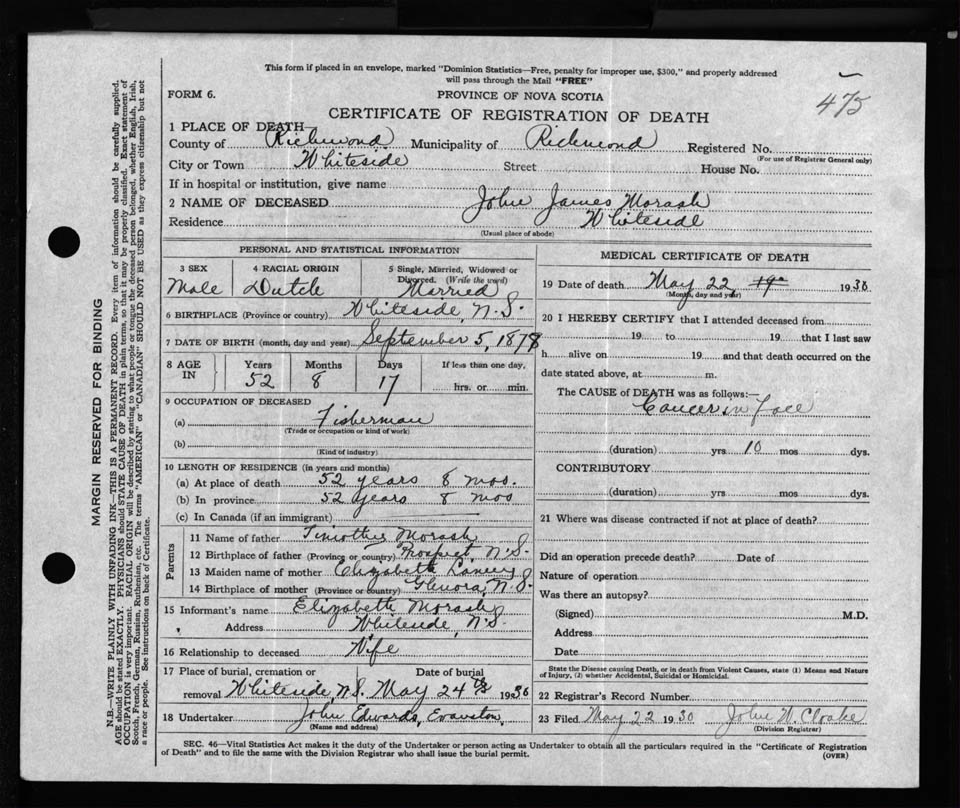 This form if placed in an envelope, marked "Dominion Statistics—Free, penalty for improper use, $300," and properly addressed
will pass through the Mail "FREE"
FORM 6.
PROVINCE OF NOVA SCOTIA
475
CERTIFICATE OF REGISTRATION OF DEATH
1 PLACE OF DEATH—
County of Richmond Municipality of Richmond Registered No.
(For use of Registrar General only)
City or Town Whiteside Street House No.
If in hospital or institution, give name
2 NAME OF DECEASED John James Morash
Residence Whiteside
(Usual place of abode)
PERSONAL AND STATISTICAL INFORMATION
3 SEX Male
4 RACIAL ORIGIN Dutch
5 Single, Married, Widowed or Divorced. (Write the word) Married
6 BIRTHPLACE (Province or country) Whiteside, N.S.
7 DATE OF BIRTH (month, day and year) September 5, 1878
8 AGE IN
Years Months Days If less than one day,
52 8 17 hrs. or min.
9 OCCUPATION OF DECEASED
(a) Fisherman
(Trade or occupation or kind of work)
(b)
(Kind of industry)
10 LENGTH OF RESIDENCE (in years and months)
(a) At place of death 52 years 8 mos.
(b) In province 52 years 8 mos
(c) In Canada (if an immigrant)
Parents
11 Name of father Timothy Morash
12 Birthplace of father (Province or country) Prospect N.S.
13 Maiden name of mother Elizabeth
14 Birthplace of mother (Province or country) Glenora, N.S.
15 Informant's name Elizabeth Morash
Address Whiteside, N.S.
16 Relationship to deceased Wife
17 Place of burial, cremation or Date of burial
removal Whiteside, N.S. May 24th 1930
18 Undertaker John Edwards, Evanston,
(Name and address)
MEDICAL CERTIFICATE OF DEATH
19 Date of death May 22 19 1930
(Month, day and year)
20 I HEREBY CERTIFY that I attended deceased from
19 to 19 that I last saw
h alive on 19 and that death occurred on the
date stated above, at m.
The CAUSE of DEATH was as follows:—
Cancer in face
(duration) yrs 10 mos dys.
CONTRIBUTORY
(duration) yrs mos dys.
21 Where was disease contracted if not at place of death?
Did an operation precede death? Date of
Nature of operation
Was there an autopsy?
(Signed) M.D.
Address
Date
State the Disease causing Death, or in death from Violent Causes, state (1) Means and Nature
of Injury, (2) whether Accidental, Suicidal or Homicidal.
22 Registrar's Record Number
23 Filed May 22 1930 John W. Cloake
(Division Registrar)
SEC. 46—Vital Statistics Act makes it the duty of the Undertaker or person acting as Undertaker to obtain all the particulars required in the "Certificate of Registration
of Death" and to file the same with the Division Registrar who shall issue the burial permit.
(OVER)
MARGIN RESERVED FOR BINDING
N.B.—WRITE PLAINLY WITH UNFADING INK—THIS IS A PERMANENT RECORD. Every item of information should be carefully supplied.
AGE should be stated EXACTLY. PHYSICIANS should STATE CAUSE OF DEATH in plain terms, so that it may be properly classified. Exact statement of
OCCUPATION is very important. RACIAL ORIGIN will be described by stating to what people or tongue the deceased person belonged, whether English, Irish,
Scotch, French, German, Russian, Ruthenian, etc. The terms "AMERICAN" or "CANADIAN" SHOULD NOT BE USED as they express citizenship but not
a race or people. See instructions on back of Certificate.